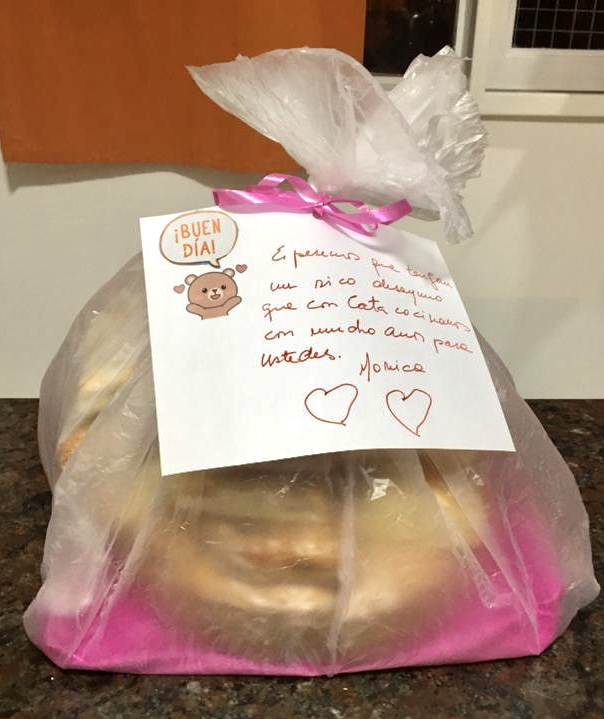 ¡BUEN
DÍA!
Esperamos que tengan
un rico desayuno
que con Cata cocinamos
con mucho amor para
ustedes.
Monica